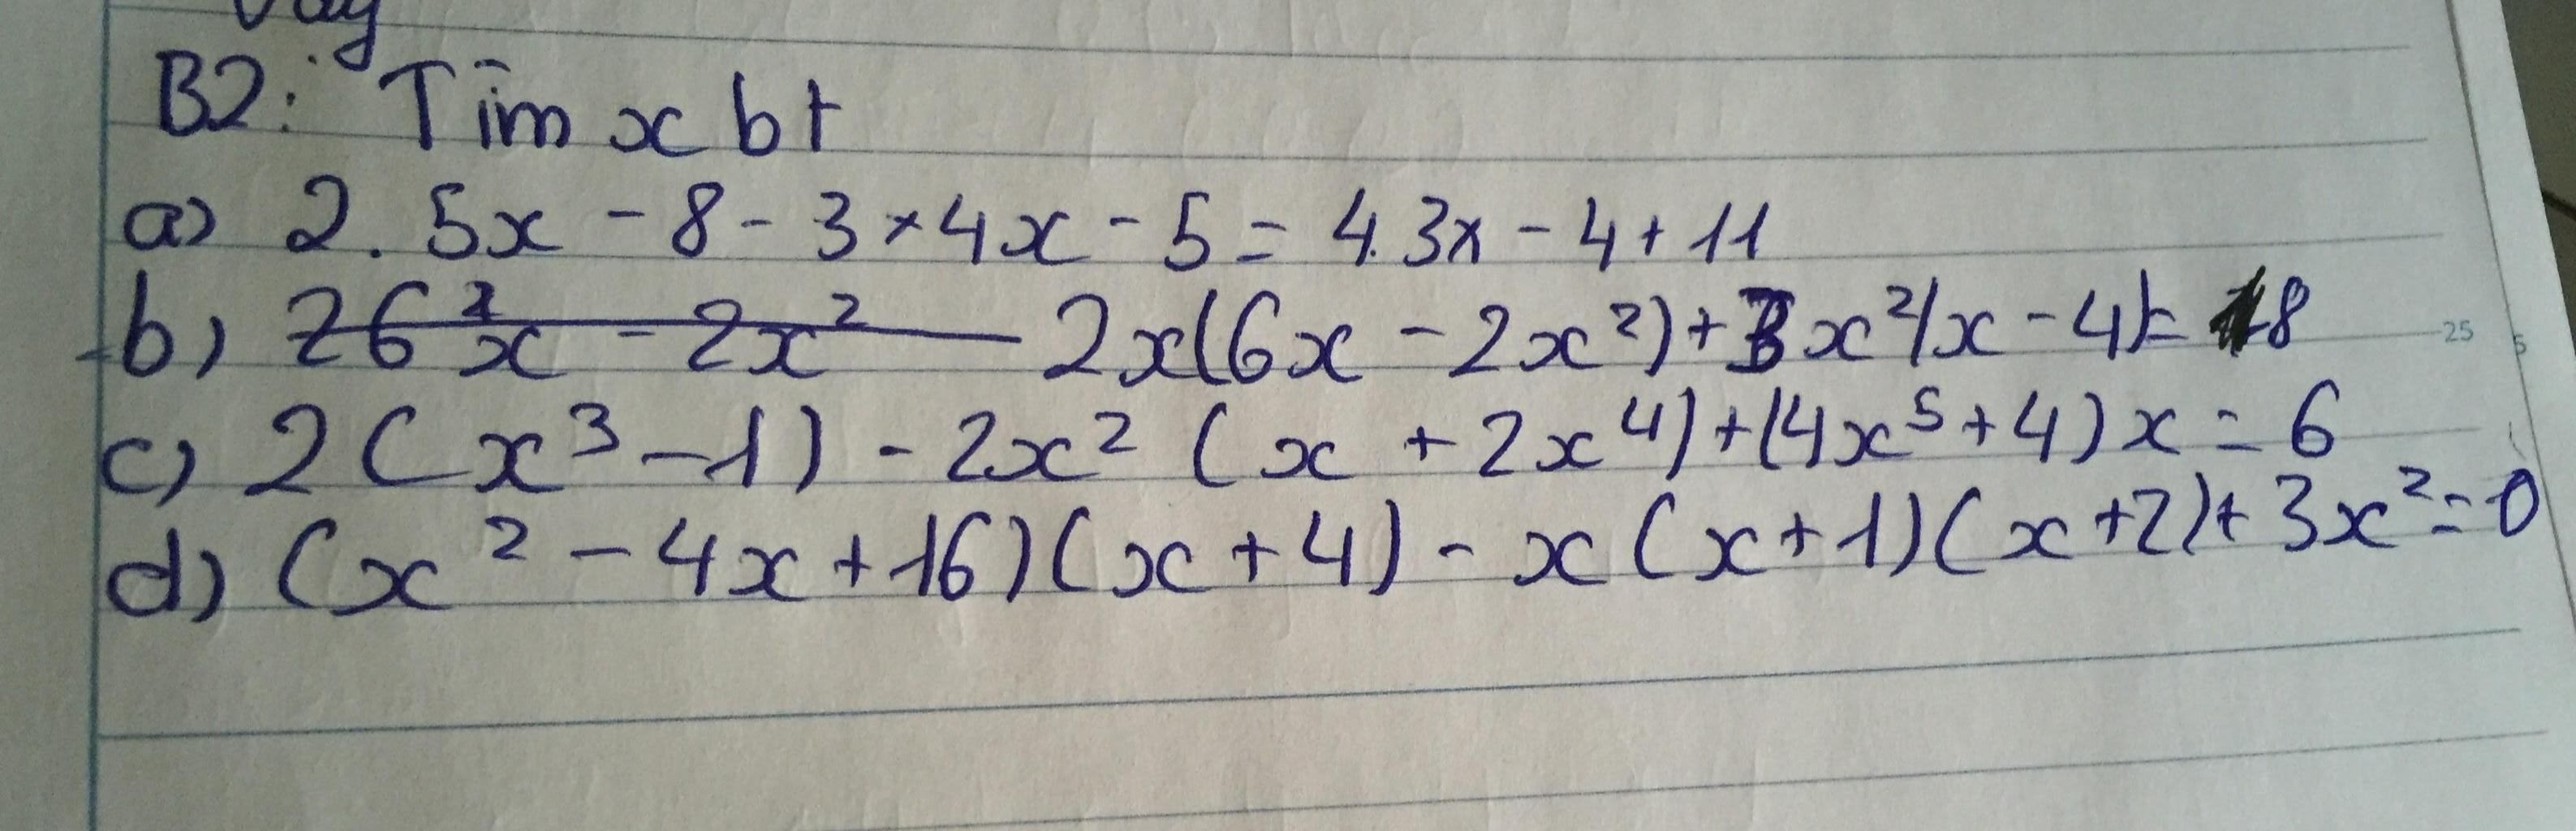 B2: Tìm x bt
a) 2. 5x - 8 - 3 × 4x - 5 = 4.3x - 4 + 11
b) 2x(6x - 2x²) + 3x²(x - 4) = 8
c) 2(x³ - 1) - 2x² (x + 2x⁴) + (4x⁵ + 4) x = 6
d) (x² - 4x + 16)(x + 4) - x (x + 1)(x + 2) + 3x² = 0
25